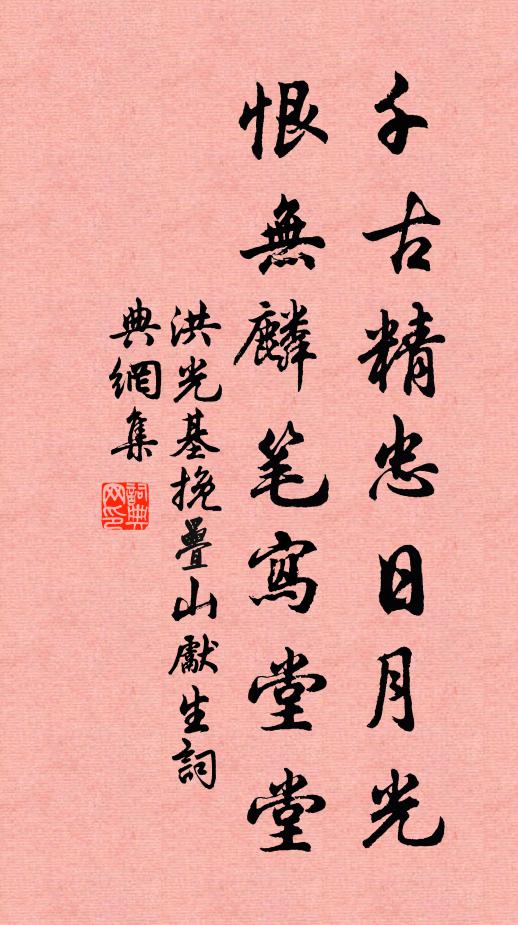 千古精忠日月光
恨無麟笔寫堂堂
洪光基挽疊山獻生詞
典網集
詞典
网印